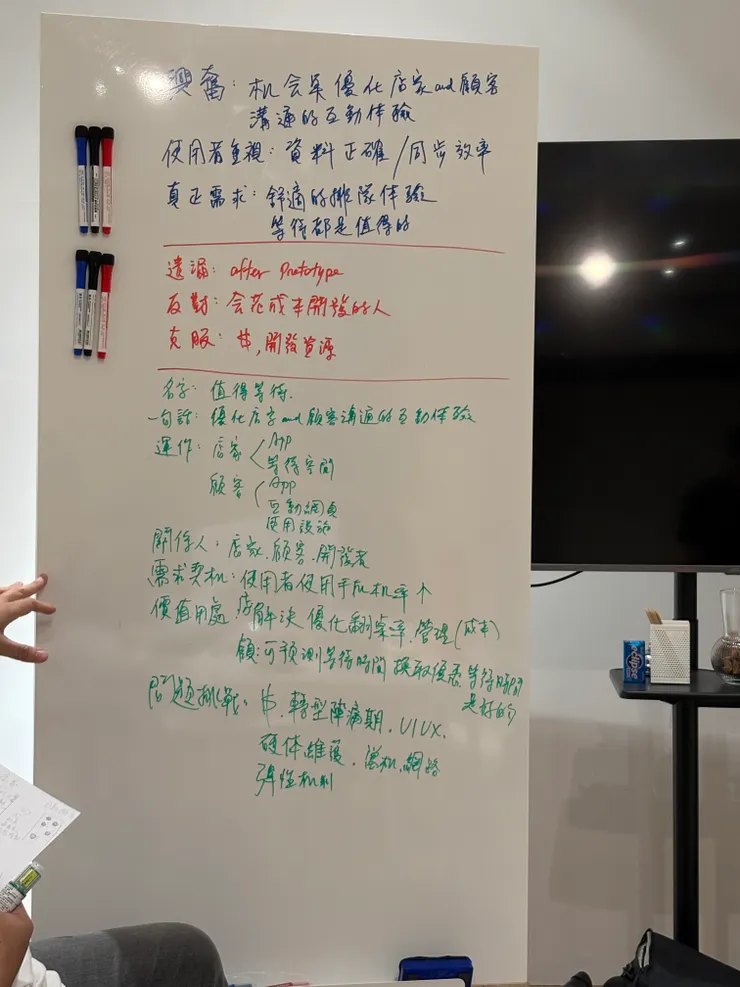 興奮：机会是優化店家and顧客
溝通的互動体驗
使用者重視：資料正確/同步效率
真正需求：舒適的排隊体驗
等待都是值得的
遺漏：after Prototype
反對：会花成本開發的人
克服：$,開發資源
名字：值得等待.
一句話：優化店家and顧客溝通的互動体驗
運作：店家 App
等待空間
顧客 App
互動網頁
使用設施
關係人：店家.顧客.開發者
需求契机：使用者使用手机机率↑
價值用處：店解決優化翻桌率.管理(成本)
顧:可預測等待時間 換取優惠 等待時間
是好的
問題挑戰：$.轉型陣痛期.UIUX.
硬体維護.當机.網路
彈性机制
eclipse